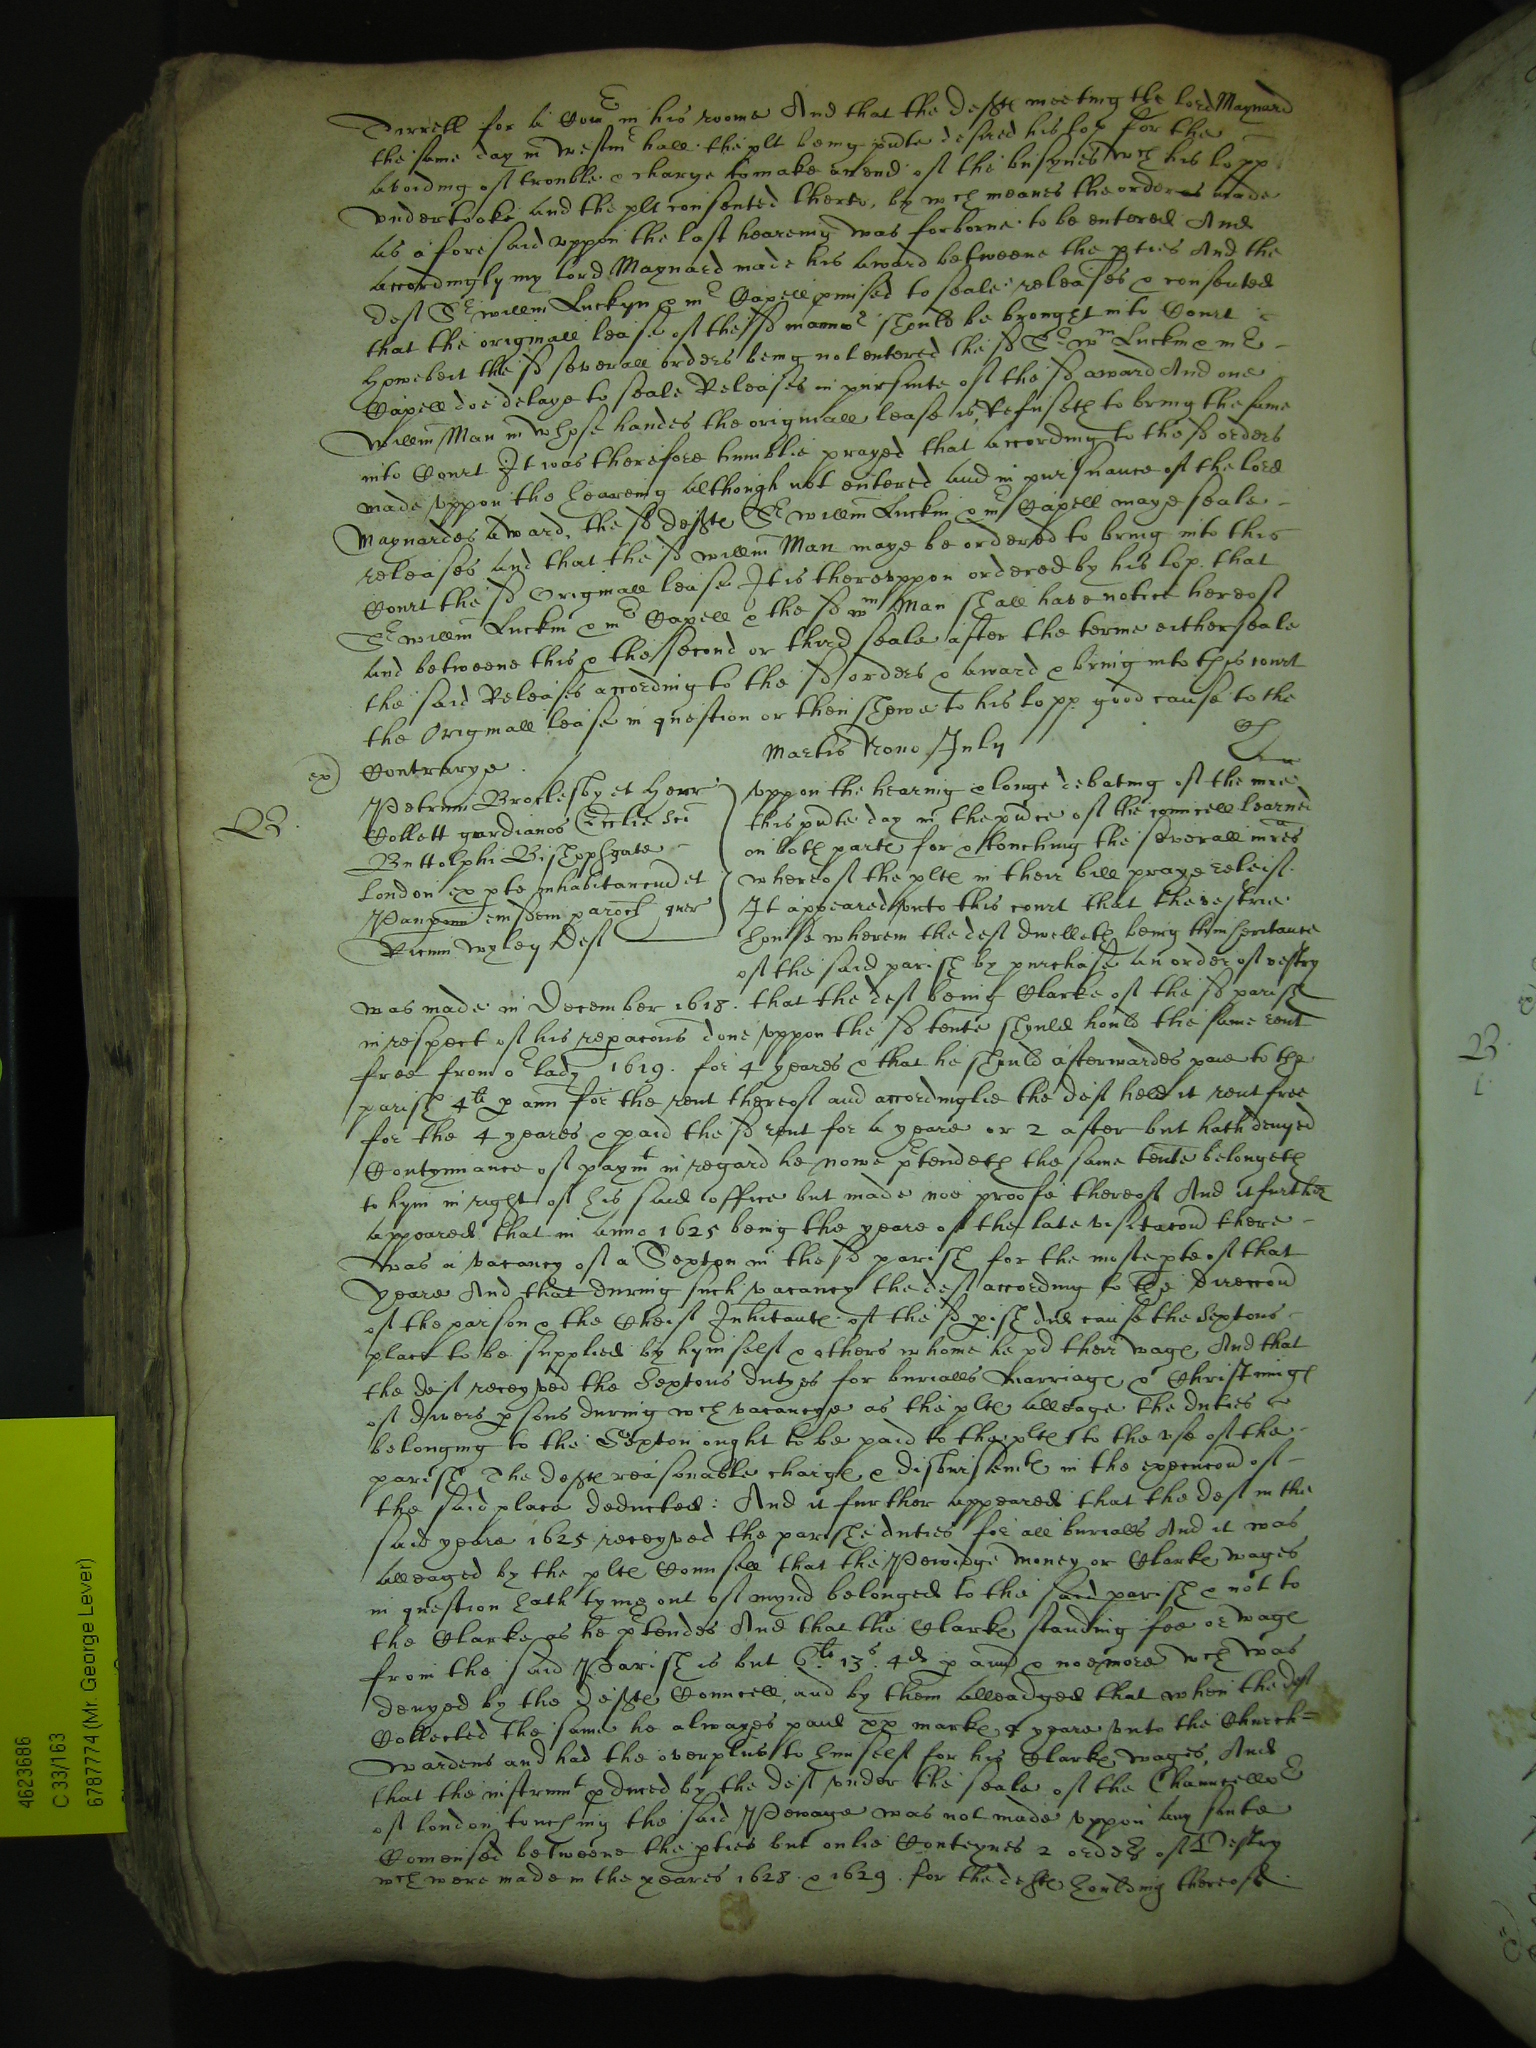 Tirrell for a Comr in his roome And that the deftes meeting the lord Maynard
the same day in Westmr hall the plt being pnte desired his lop for the
avoiding of trouble & charge to make an end of the busynes wch his lopp
vndertooke and the plt consented therto, by wch meanes the orders made
as aforesaid vppon the last heareing was forborne to be entered And
accordingly my lord Maynard made his award betweene the pties And the
deft Sr willm Luckyn & mr Capell pmised to seale releases & consented
that the originall lease of the sd mannor should be brought into Court
Howebeit the sd severall orders being not entered the sd Sr wm Luckin & mr
Capell doe delaye to seale Releases in pursuite of the sd award And one
Willm Man in whose handes the originall lease is, refuseth to bring the same
into Court It was therefore humblie prayed that according to the sd orders
made vppon the heareing although not entered and in pursuance of the lord
Maynardes award, the sd deftes Sr willm Luckin & mr Capell maye seale
releases and that the sd willm Man maye be ordered to bring into this
Court the sd Originall lease It is therevppon ordered by his lop. that
Sr willm Luckin & mr Capell & the sd wm Man shall have notice hereof
and betweene this & the second or third seale after the terme either seale
the said Releases according to the sd orders & award & bring into this court
the Originall lease in question or then shewe to his lopp good cause to the
Contrarye.
Martis Nono July
ex)
B
Petrum Broclesby et Henr
Collett gardianos Ecclie Sci
Buttolphi Bishopsgate
London ex pte inhabitancium et
emsdem paroch quer
Ricum Wyley deft
Vppon the hearing & longe debating of the mre
this pnte day in the pnce of the councell learned
on both partes for & touching the severall mres
whereof the pltes in their bill praye releif.
It appeared vnto this court that the vestrie
house wherein the deft dwelleth being thinheritance
of the said parish by purchase an order of vestry
was made in December 1618. that the deft being Clarke of the sd parish
in respect of his repacons done vppon the sd tente should hould the same rent
free from or lady 1619. for 4 yeares & that he should afterwardes paie to the
parish 4li p ann for the rent thereof and accordinglie the deft held it rent free
for the 4 yeares & paid the sd rent for a yeare or 2 after but hath denyed
Contynuance of paymt in regard he nowe ptendeth the same tente belongeth
to hym in right of his said office but made noe proofe thereof And it further
appeared that in anno 1625 being the yeare of the late visitacon there
was a vacancy of a Sexton in the sd parish for the moste pte of that
yeare And that during such vacancy the deft according to the direccon
of the parson & the Cheif Inhitantes of the sd pish did cause the Sextons
place to be supplied by hymself & others whome he pd their wages And that
the deft receyved the Sextons dutyes for burialls Marriages & Christnings
of divers psons during wch vacancye as the pltes alleage the duties
belonging to the Sexton ought to be paid to the pltes to the vse of the
parish The deftes reasonable charges & disbursemts in the execucon of
the said place deducted: And it further appeared that the deft in the
said yeare 1625 receyved the parishe duties for all burialls And it was
alleaged by the pltes Counsell that the Pewidge money or Clarkes wages
in question hath tyme out of mynd belonged to the said parish & not to
the Clarke as he ptendes And that the Clarkes standing fee or wages
from the said Parish is but 6li 13s. 4d p ann & noe more wch was
denyed by the deftes Councell, and by them alleadged that when the deft
Collected the same he alwayes paid xx markes a yeare vnto the Church=
wardens and had the overplus to himself for his Clarkes wages, And
that the instrumt pduced by the deft vnder the seale of the Chauncellor
of London touching the said Pewage was not made vppon any suite
Comensed betweene the pties but onlie Conteynes 2 orders of Vestry
wch were made in the yeares 1628. & 1629. for the deftes houlding thereof.
4623686
C 33/163
6787774 (Mr. George Lever)
B